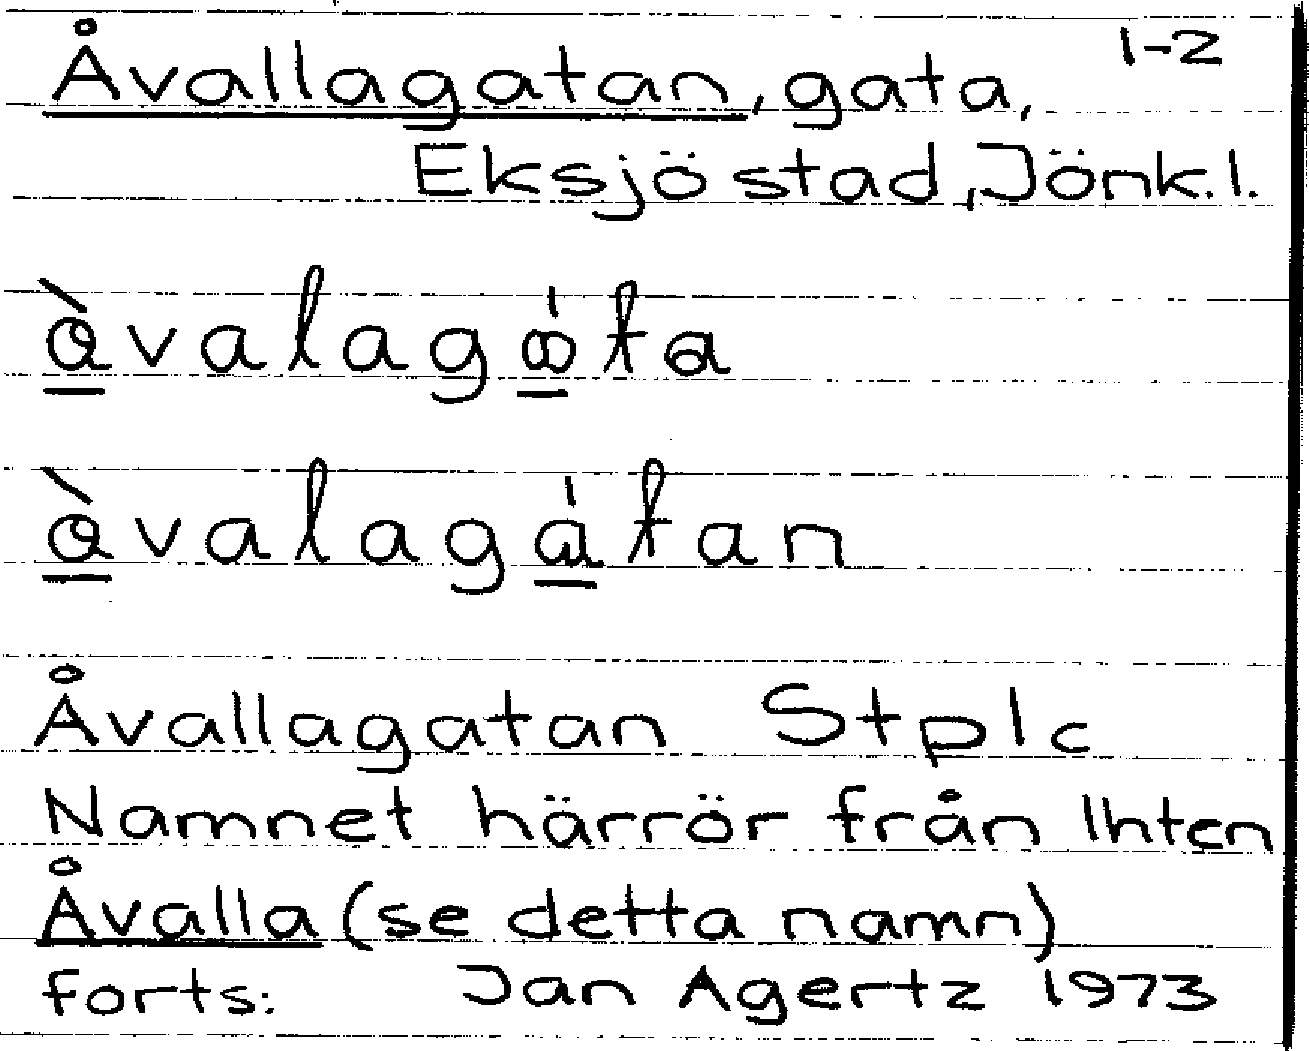 Åvallagatan, gata, 1-2
Eksjö stad, Jönk.l.
åvalagåta
åvalagatan
Åvallagatan Stplc
Namnet härrör från lhten
Åvalla (se detta namn)
forts: Jan Agertz 1973